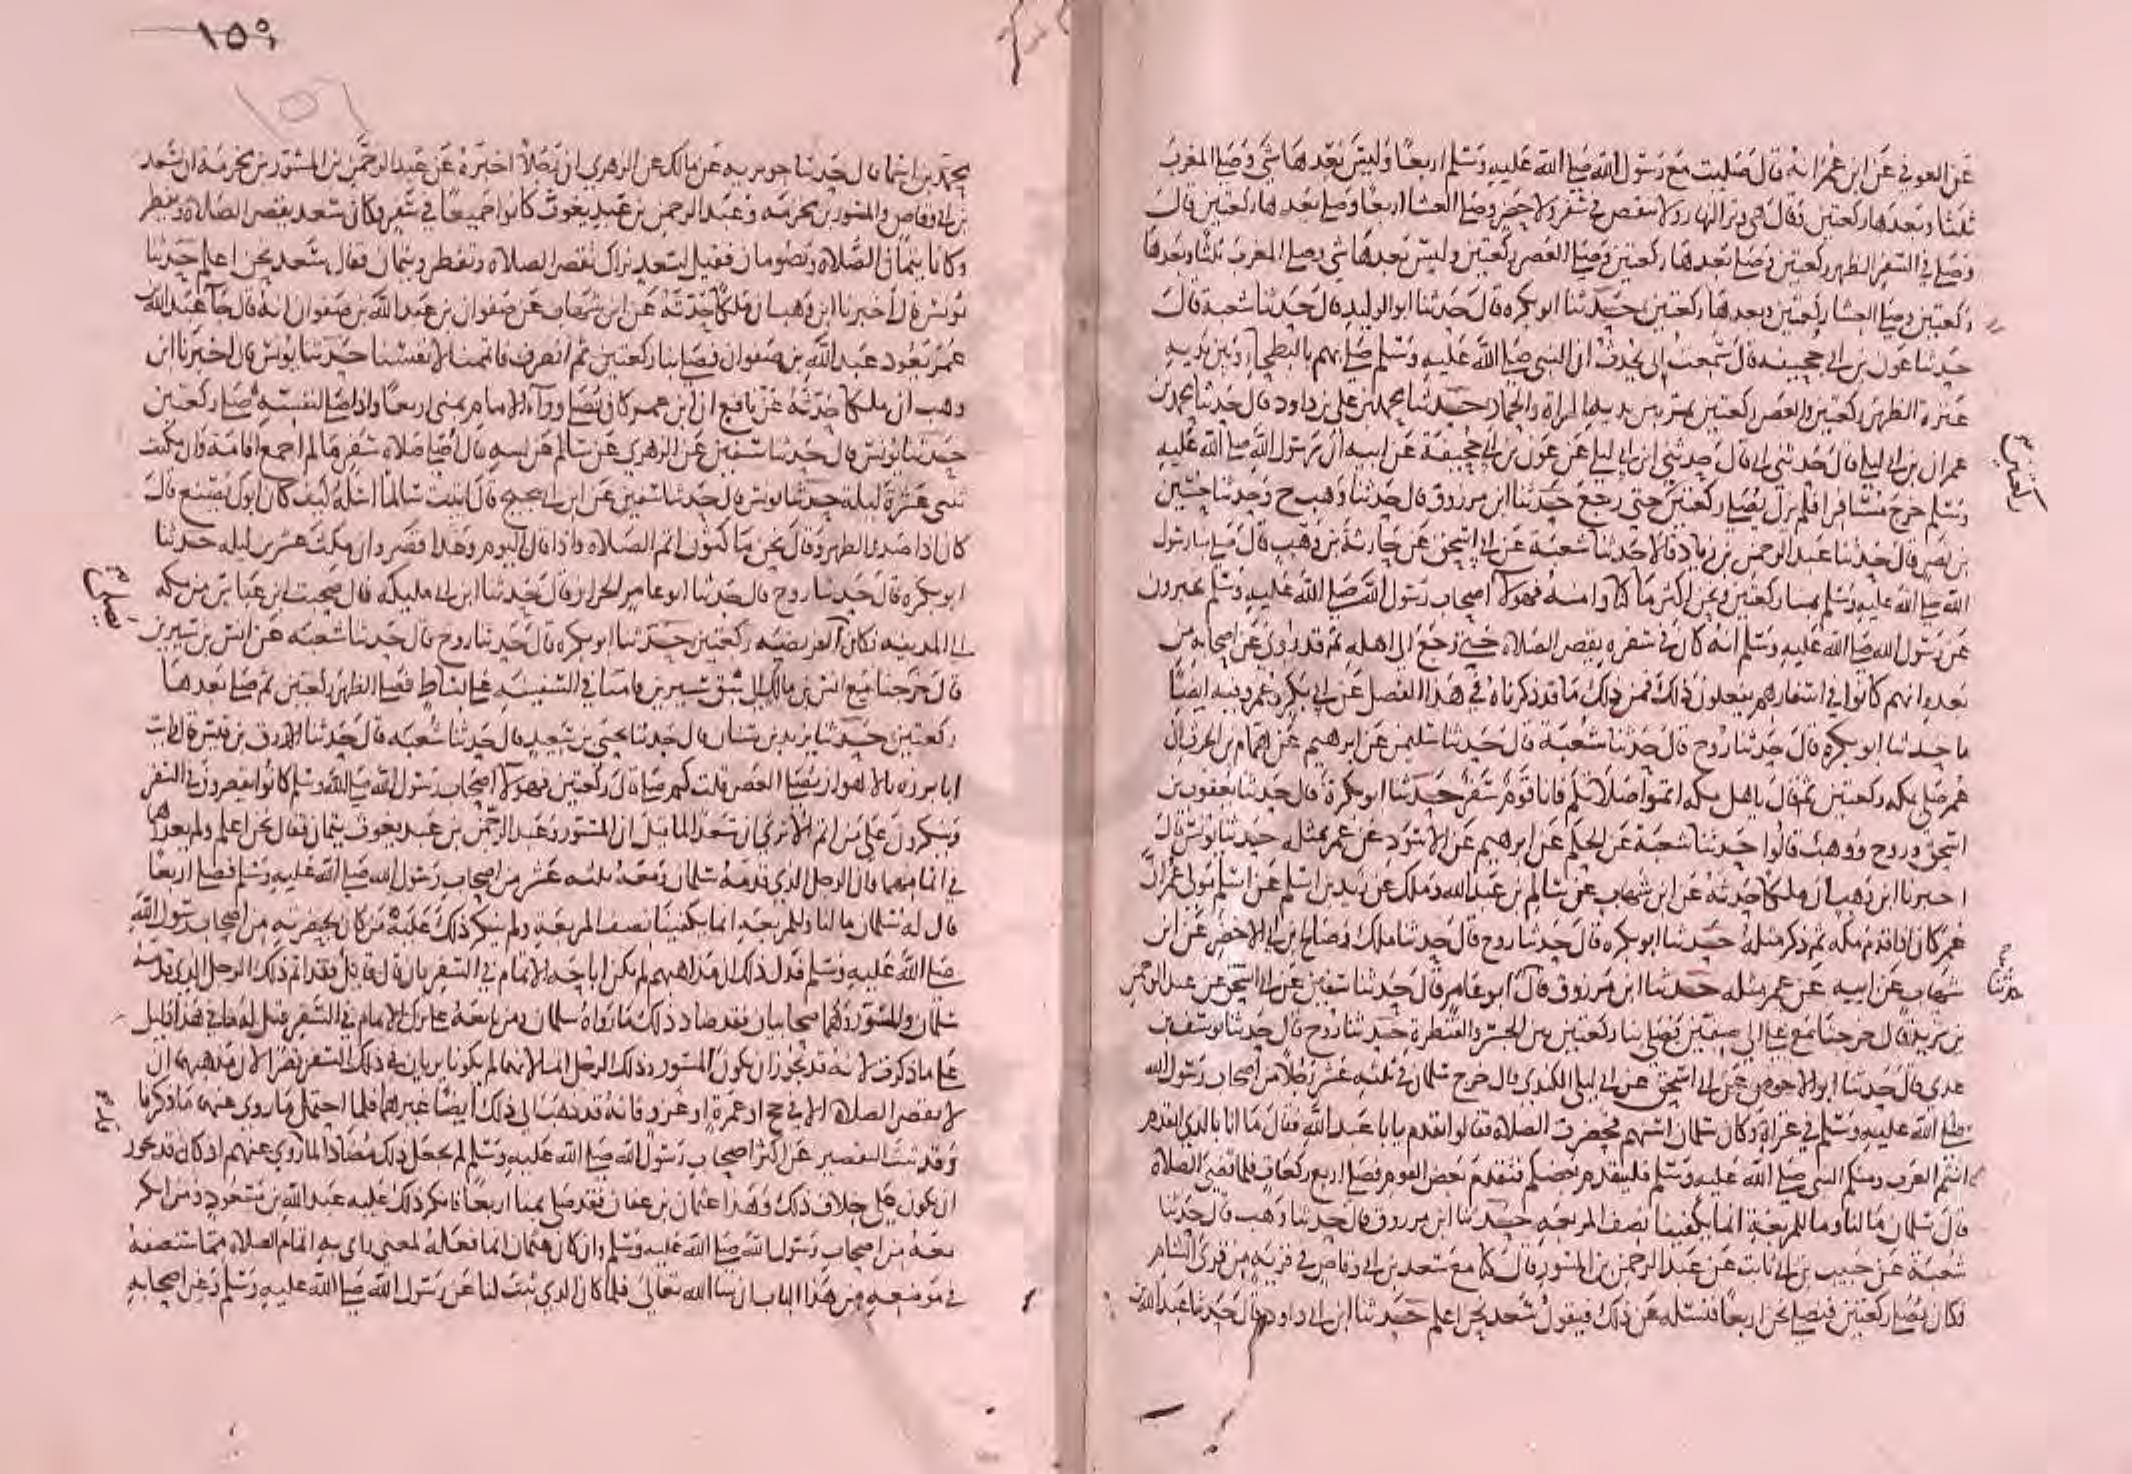 عن العوفي عن ابن عمر انه قال صليت مع رسول الله صلى الله عليه وسلم اربعا وليس بعدها شي وصلى المغرب
ثلثا وبعدها ركعتين وقال هي وتر النهار ولا تنقص في سفر ولا حضر وصلى العشا اربعا وصلى بعدها ركعتين قال
وصلى في السفر الظهر ركعتين وصلى بعدها ركعتين وصلى العصر ركعتين وليس بعدها شي وصلى المغرب ثلثا وبعدها
ركعتين وصلى العشا ركعتين وبعدها ركعتين حدثنا ابو بكره قال حدثنا ابو الوليد قال حدثنا شعبة قال
حدثنا عون بن ابي جحيفه قال سمعت ابي يحدث ان النبي صلى الله عليه وسلم صلى بهم بالبطحا وبين يديه
عنزة الظهر ركعتين والعصر ركعتين يمر بين يديها المراة والحمار حدثنا محمد بن علي بن داود قال حدثنا محمد بن
عمران بن ابي ليلى قال حدثني ابي قال حدثني ابن ابي ليلى عن عون بن ابي جحيفة عن ابيه ان رسول الله صلى الله عليه
وسلم خرج مسافرا فلم يزل يصلي ركعتين حتى رجع حدثنا ابن مرزوق قال حدثنا وهب ح وحدثنا حسين
بن نصر قال حدثنا عبد الرحمن بن زياد قالا حدثنا شعبة عن ابي اسحق عن حارثة بن وهب قال صلى بنا رسول
الله صلى الله عليه وسلم بمنا ركعتين ونحن اكثر ما كنا وامنه فهولا اصحاب رسول الله صلى الله عليه وسلم يخبرون
عن رسول الله صلى الله عليه وسلم انه كان في سفره يقصر الصلاة حتى رجع الى اهله ثم قد روي عن اصحابه من
بعده انهم كانوا في اسفارهم يفعلون ذلك فمن ذلك ما قد ذكرناه في هذا الفصل عن ابي بكر وعمر ومنه ايضا
ما حدثنا ابو بكره قال حدثنا روح قال حدثنا شعبة قال حدثنا سليمن عن ابرهيم عن همام بن الحرث ان
عمر صلى بمكه ركعتين ثم قال ياهل مكه اتموا صلاتكم فانا قوم سفر حدثنا ابو بكرة قال حدثنا يعقوب بن
اسحق وروح ووهب قالوا حدثنا شعبة عن الحكم عن ابرهيم عن الاسود عن عمر بمثله حدثنا يونس قال
اخبرنا ابن وهب ان ملكا حدثه عن ابن شهاب عن سالم بن عبد الله وملك عن زيد بن اسلم عن اسلم مولى عمر ان
عمر كان اذا قدم مكه ثم ذكر مثله حدثنا ابو بكره قال حدثنا روح قال حدثنا ملك وصالح بن ابي الاخضر عن ابن
شهاب عن ابيه عن عمر مثله حدثنا ابن مرزوق قال ابو عامر قال حدثنا سفين عن ابي اسحق عن عبد الرحمن
بن يزيد قال خرجنا مع علي الى صفين فصلى بنا ركعتين بين الجسر والقنطرة حدثنا روح قال حدثنا يوسف بن
عدي قال حدثنا ابو الاحوص عن ابي اسحق عن ابي ليلى الكندي قال خرج سلمان في ثلثه عشر رجلا من اصحاب رسول الله
صلى الله عليه وسلم في غزاة وكان سلمان اسنهم فحضرت الصلاة فقالوا تقدم يابا عبد الله فقال ما انا بالذي اتقدم
انتم العرب ومنكم النبي صلى الله عليه وسلم فليتقدم بعضكم فتقدم بعض القوم فصلى اربع ركعات فلما قضى الصلاة
قال سلمان ما لنا وما للمربعة انما يكفينا نصف المربعه حدثنا ابن مرزوق قال حدثنا وهب قال حدثنا
شعبة عن حبيب بن ابي ثابت عن عبد الرحمن بن المسور قال كنا مع سعد بن ابي وقاص في قرية من قرى الشام
فكان يصلي ركعتين فنصلي نحن اربعا فنسئله عن ذلك فيقول سعد نحن اعلم حدثنا ابن ابي داود قال حدثنا عبد الله بن
١٥٩
١٥٦
محمد بن اسما قال حدثنا جويريه عن مالك عن الزهري ان رجلا اخبره عن عبد الرحمن بن المسور بن مخرمة ان سعد
بن ابي وقاص والمسور بن مخرمه وعبد الرحمن بن عبد يغوث كانوا جميعا في سفر وكان سعد يقصر الصلاة ويفطر
وكانا يتمان الصلاة ويصومان فقيل لسعد نراك تقصر الصلاة وتفطر ويتمان فقال سعد نحن اعلم حدثنا
يونس قال اخبرنا ابن وهب ان ملكا حدثه عن ابن شهاب عن صفوان بن عبد الله بن صفوان انه قال جا عبد الله بن
عمر يعود عبد الله بن صفوان فصلى بنا ركعتين ثم انصرف فاتممنا لانفسنا حدثنا يونس قال اخبرنا ابن
وهب ان ملكا حدثه عن نافع ان ابن عمر كان يصلي وراء الامام بمنى اربعا واذا صلى لنفسه صلى ركعتين
حدثنا يونس قال حدثنا سفين عن الزهري عن سالم عن ابيه قال اصلي صلاة سفر ما لم اجمع اقامة وان مكثت
ثنتى عشرة ليلة حدثنا يونس قال حدثنا سفين عن ابن ابي نجيح قال اتيت سالما اسئله كيف كان ابوك يصنع قال
كان اذا صدر الظهر وقال نحن ماكثون اتم الصلاه واذا قال اليوم وغدا قصر وان مكث عشرين ليله حدثنا
ابو بكره قال حدثنا روح قال حدثنا ابو عامر الخزاز قال حدثنا ابن ابي مليكه قال صحبت ابن عباس من مكه
الى المدينه فكان الفريضه ركعتين حدثنا ابو بكره قال حدثنا روح قال حدثنا شعبه عن انس بن سيرين
قال خرجنا مع انس بن مالك الى شق سيرين فامنا في السفينه على بساط فصلى الظهر ركعتين ثم صلى بعدها
ركعتين حدثنا يزيد بن سنان قال حدثنا يحيى بن سعيد قال حدثنا شعبه قال حدثنا الازرق بن قيس قال رايت
ابا برزه بالاهواز يصلي العصر قلت كم صلى قال ركعتين فهولا اصحاب رسول الله صلى الله وسلم كانوا يقصرون في السفر
وينكرون على من اتم الا ترى ان سعدا لما قيل ان المسور وعبد الرحمن بن عبد يغوث يتمان فقال نحن اعلم ولم يعذرهما
في اتمامهما فان الرجل الذي قدمه سلمان ومعه ثلثه عشر من اصحاب رسول الله صلى الله عليه وسلم فصلى اربعا
قال له سلمان ما لنا وللمربعه انما يكفينا نصف المربعة ولم ينكر ذلك عليه من كان بحضرته من اصحاب رسول الله
صلى الله عليه وسلم فدل ذلك ان مذاهبهم لم تكن اباحه الاتمام في السفر فان قال قائل فقد اتم ذلك الرجل الذي قدمه
سلمان والمسور وهما صحابيان فقد ضاد ذلك ما رواه سلمان ومن تابعه على ترك الاتمام في السفر قيل له ما في هذا دليل
على ما ذكرت لانه قد يجوز ان يكون المسور وذلك الرجل اتما لانهما لم يكونا يريان في ذلك السفر قصرا لان مذهبهما ان
لا تقصر الصلاة الا في حج او عمرة او غزو فانه قد ذهب الى ذلك ايضا غيرهما فلما احتمل ما روي عنهما ما ذكرنا
وقد ثبت التقصير عن اكثر اصحاب رسول الله صلى الله عليه وسلم لم نجعل ذلك مضادا لما روي عنهم اذ كان قد يجوز
ان يكون على خلاف ذلك وهذا عثمان بن عفان فقد صلى بمنا اربعا فانكر ذلك عليه عبد الله بن مسعود ومن انكر
معه من اصحاب رسول الله صلى الله عليه وسلم وان كان عثمان انما فعله لمعنى راى به اتمام الصلاة مما سنصفه
في موضعه من هذا الباب ان شا الله تعالى فلما كان الذي ثبت لنا عن رسول الله صلى الله عليه وسلم وعن اصحابه